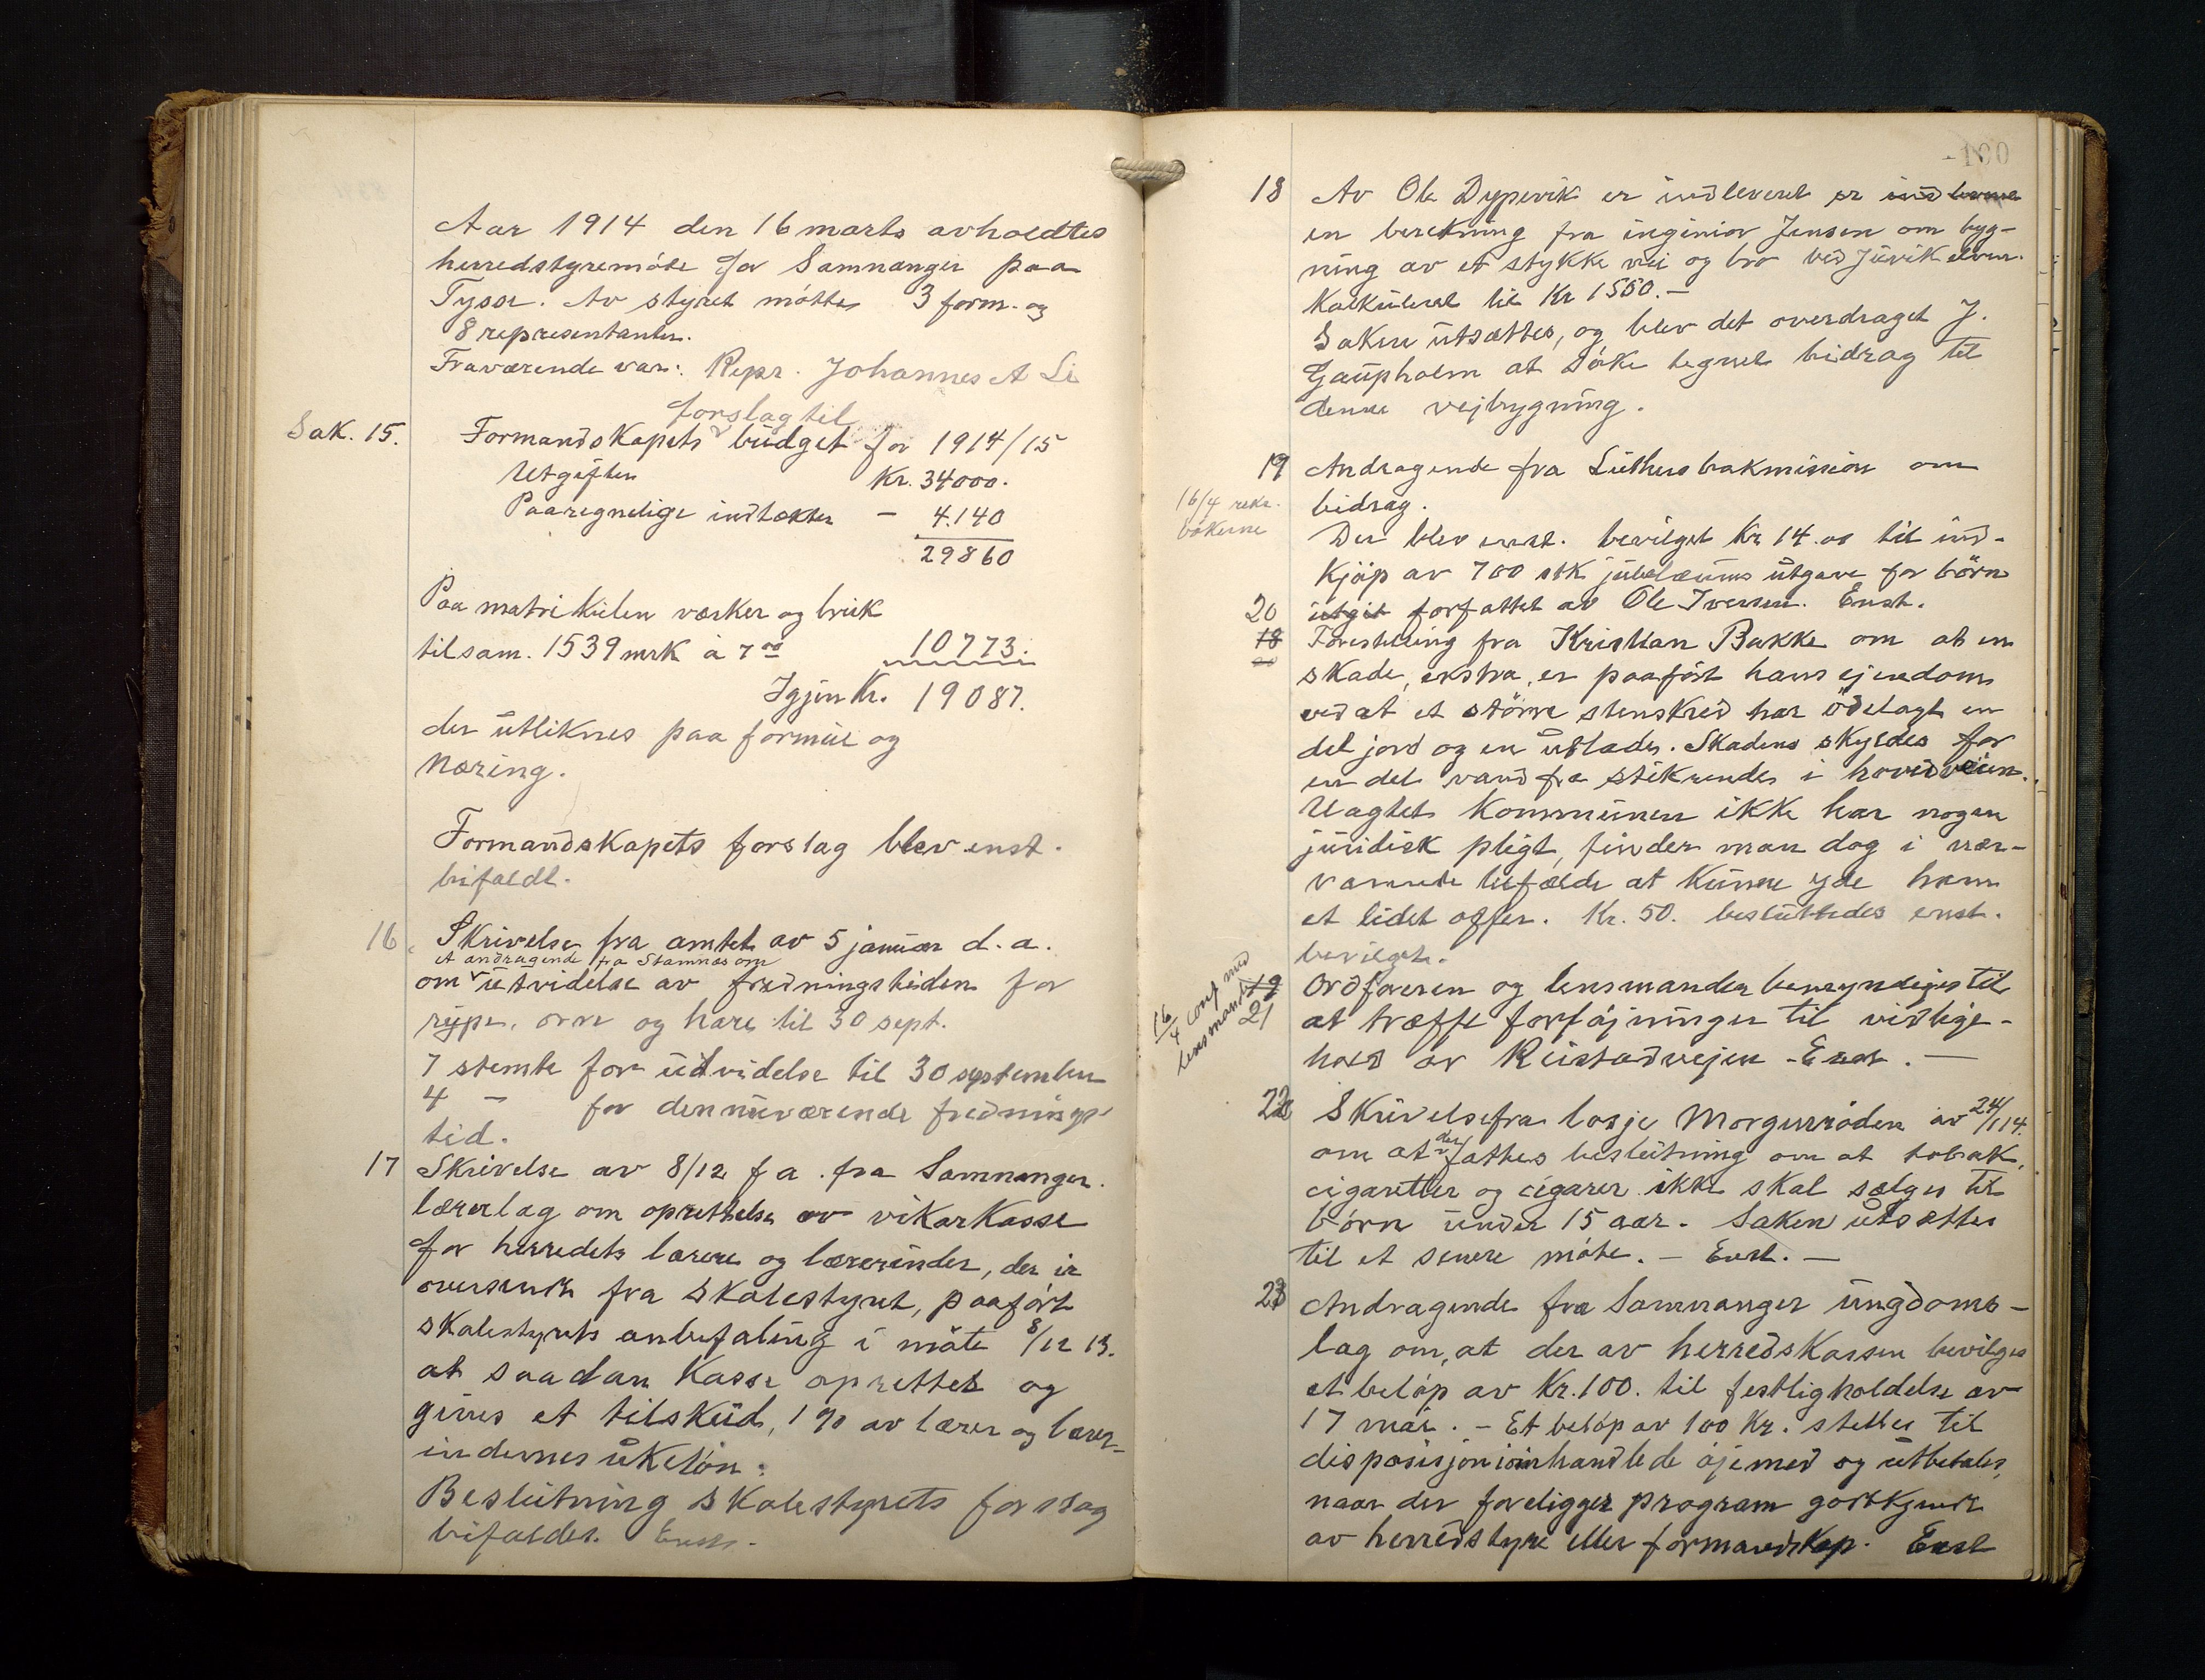 Aar 1914 den 16 marts avholdtes
herredstyremöte for Samnanger paa
Tysse. Av styret mötte 3 form. og
8 representanter.
Fraværende var: Repr. Johannes A Li
forslag til
Sak. 15. Formandskapets budget for 1914/15
Utgifter Kr. 34000.
Paaregnelige indtækter - 4.140
29860
Paa matrikulen værker og bruk
tilsam. 1539 mrk à 7 00 10773.
Igjen Kr. 19087.
der utliknes paa formue og
næring.
Formandskapets forslag blev enst.
bifaldt.
16. Skrivelse fra amtet av 5 januar d. a.
et andragende fra Stamnæs om
om utvidelse av fredningstiden for
rype, orre og hare til 30 sept.
7 stemte for utvidelse til 30 september
4 - for den nuværende frednings-
tid.
17 Skrivelse av 8/12 f a. fra Samnanger
lærerlag om oprettelse av vikarkasse
for herredets lærere og lærerinder, der er
oversendt fra skolestyret, paafört
skolestyrets anbefaling i möte 8/12 13.
at saadan kasse oprettes og
gives et tilskud, 1 % av lærer og lærer-
indernes ukelön.
Beslutning skolestyrets forslag
bifaldes. Enst.
100
18 Av Ole Dypevik er indleveret er indleveret
en berekning fra inginiør Jensen om byg-
ning av et stykke vei og bro ved Jüvikelven.
Kalkuleret til Kr 1550.-
Saken utsættes, og blev det overdraget J.
Gaupholm at söke tegnet bidrag til
denne vejbygning.
19 Andragende fra Lutherbakmission om
16/4 rekv. bidrag.
bökerne Der blev enst. bevilget Kr 14.00 til ind-
kjöp av 700 stk jubelæums utgave for börn
20 utgit forfattet av Ole Iversen. Enst.
18 Forestilling fra Kristian Bakke om at en
20 skade, ekstra, er paafört hans ejendom
ved at et större stenskred har ödelagt en
del jord og en utlade. Skadens skyldes for
en del vand fra stikrender i hovedveien.
Uagtet kommunen ikke har nogen
juridisk pligt, finder man dog i nær-
værende tilfælde at kunne yde ham
et lidet offer. Kr. 50. besluttedes enst.
bevilget.
16/4 conf med
lensmand 19 Ordföreren og lensmanden bemyndiges til
21 at træffe forföjninger til vedlige-
hold av Reistadvejen - Enst. -
22 Skrivelse fra losje Morgenröden av 24/1 14.
om at der fattes beslutning om at tobak,
cigaretter og cigarer ikke skal sælges til
börn under 15 aar. Saken utsættes
til et senere möte. - Enst. -
23 Andragende fra Samnanger ungdoms-
lag om, at der av herredskassen bevilges
et belöp av Kr. 100. til festligholdelse av
17 mai. - Et belöp av 100 Kr. stilles til
disposisjon i omhandlede öjemed og utbetales,
naar der foreligger program godkjendt
av herredstyre eller formandskap. Enst